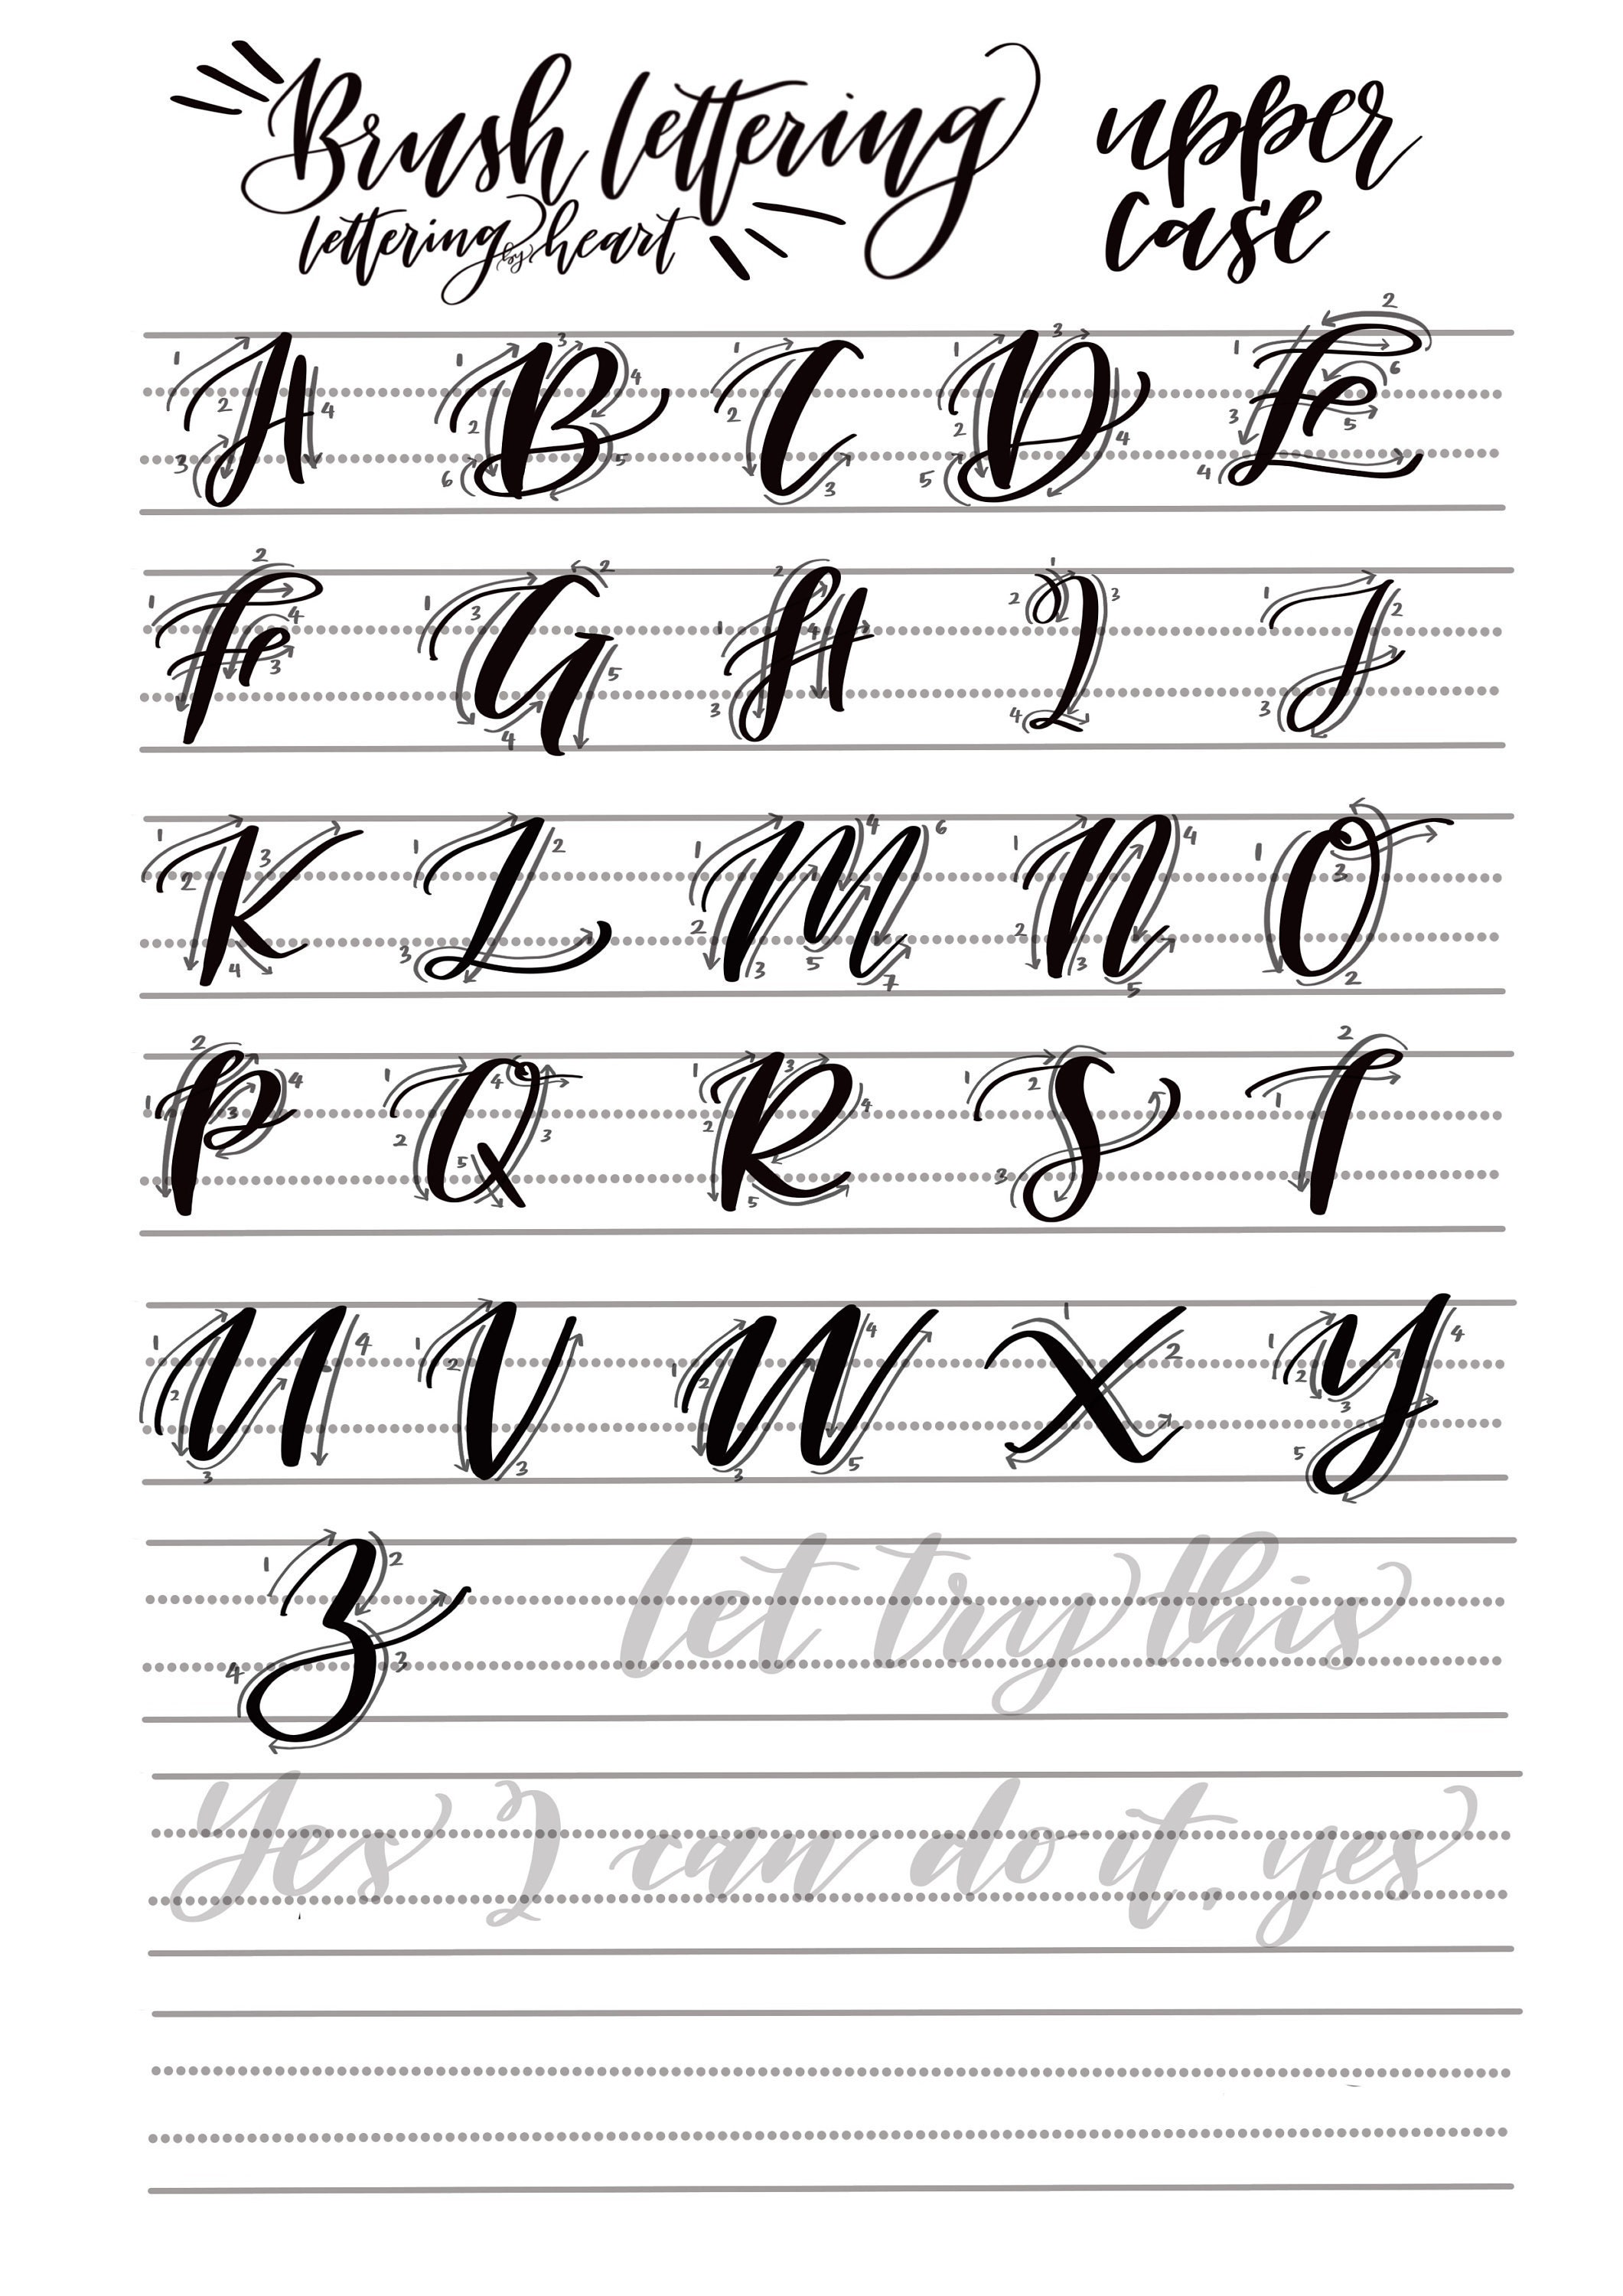 Brush lettering upper
lettering by heart case
A B C D E
F G H I J
K L M N O
P Q R S T
U V W X Y
Z let try this
Yes I can do it, yes